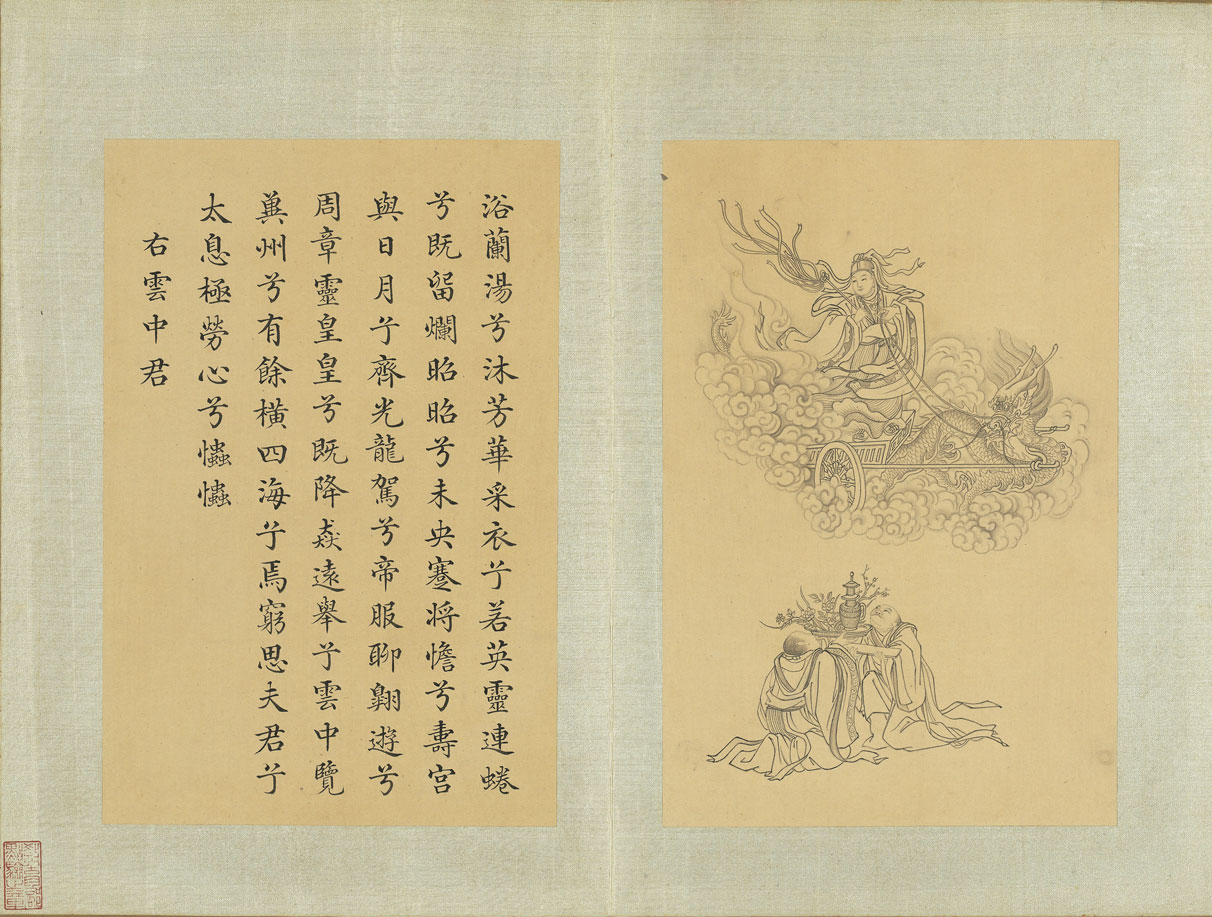 浴蘭湯兮沐芳華采衣兮若英靈連蜷
兮既留爛昭昭兮未央蹇将憺兮壽宮
與日月兮齊光龍駕兮帝服聊翺遊兮
周章靈皇皇兮既降猋遠舉兮雲中覽
兾州兮有餘橫四海兮焉窮思夫君兮
太息極勞心兮𢥞𢥞
右雲中君